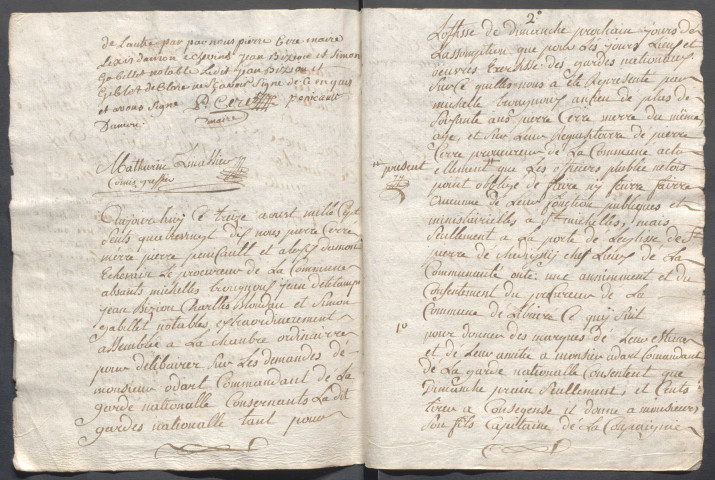 de lautre par par nous pierre Cere maire
jean Bizion et Simon
Gabillet notable Ledit jean Bizion et
Gabillet de Clare ne Savoir Signe de Ce enquis
et avons Signe P Cere penicault
Damon. maire
Mathurin
Comis greffier
Aujourd huy Ce treize aoust mille Sept
Sents quatrevingt dix nous pierre Cerre
merre pierre penicault et alexis damont
Echevin Le procureur de La Commune
absants michelles bourgnouf jean delétampe
jean Bizion Charlles Mondru et Simon
gabillet notables, extraordinerement
assemblée a La chambre ordinairre
pour delibairer Sur Les demandes de
monsieur odart Commandant de La
garde nationalle Consernants La dit
gardes nationalle tant pour
2e
Loffise de dimanche prochain jours de
Lassomption que pour Les jours Lieux et
oeuvres Exersise des gardes nationalles
Surce quelle nous a Eté Represente par
michelle bourgnouf ansien de plus de
Soixante ans pierre Cerre merre du meme
age, et Sur Leur Requisitoire de pierre
Cerre procureur de La Commune actu
present
ellement que Les officiers publie nétois
point obligé de faire ny fairre fairre
aucunne de Leur fonction publiques et
ministairielles a St michelles, mais
Seullement a La porte de Leglise de St
pierre de chef Lieux de La
Communauté onte: une animement et du
Consentement du procureur de La
Commune de Libairé Ce quy Suit
1o
pour donner des marques de Leur estime
et de Leur amitie a monsieur odart Comandant
de La garde nationalle Consentent que
Dimanche prochain Seullement, et Cents
tirer a Consequense il donne a monsieur
Son fils Capitaine de La Compaignie